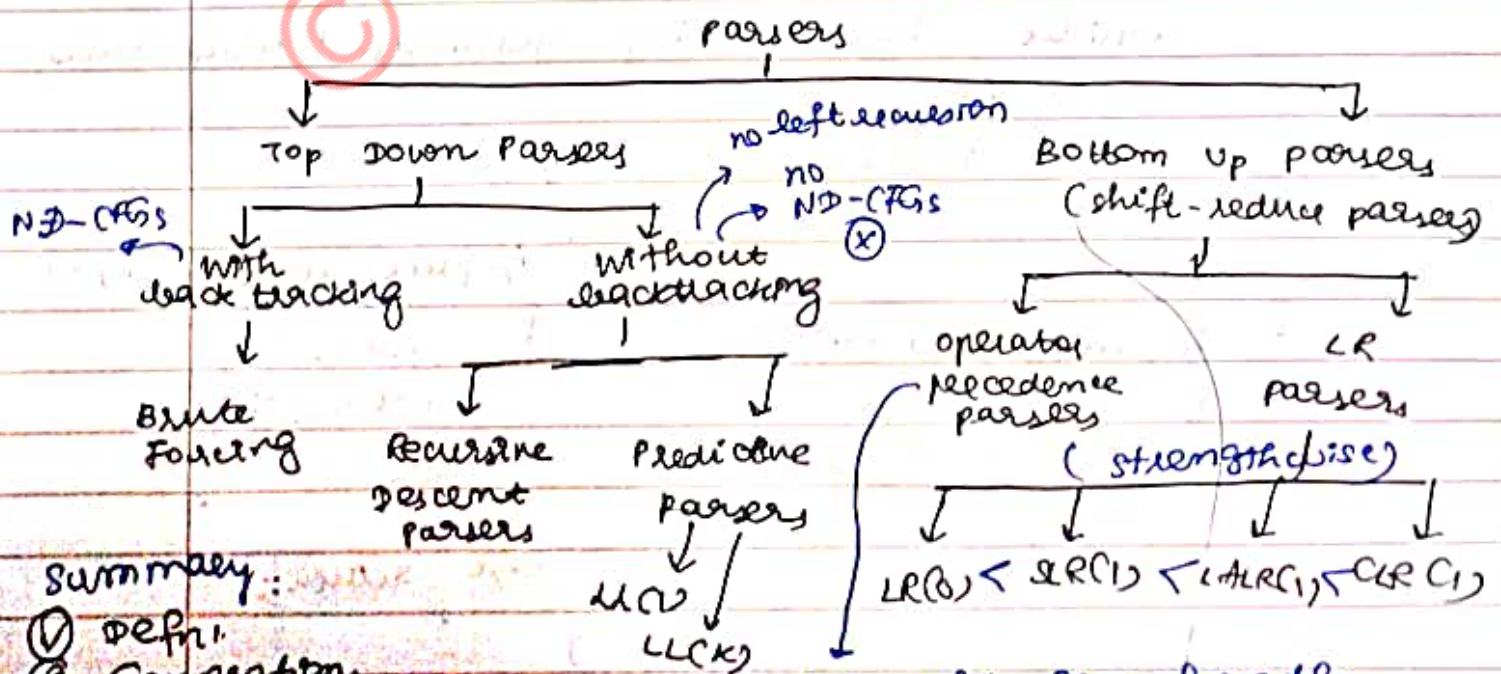 ©
Parsers
Top Down Parsers
no left recursion
no
ND-CFGs
Bottom up parsers
(shift-reduce parsers)
ND-CFGs
With
back tracking
Without
backtracking
Operator
precedence
parsers
LR
parsers
Brute
Forcing
Recursive
Descent
parsers
Predictive
parsers
(strengthwise)
LL(1)
LL(K)
LR(0) < SLR(1) < LALR(1) < CLR(1)
Summary:
Defn: